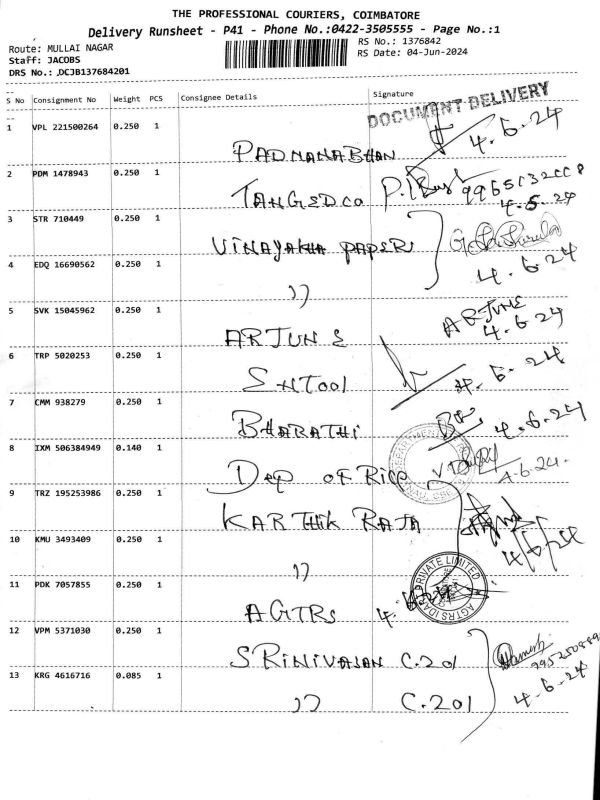 THE PROFESSIONAL COURIERS, COIMBATORE
Delivery Runsheet - P41 - Phone No.:0422-3505555 - Page No.:1
Route: MULLAI NAGAR
Staff: JACOBS
DRS No.: DCJB137684201
RS No.: 1376842
RS Date: 04-Jun-2024
S No Consignment No Weight PCS Consignee Details Signature
DOCUMENT DELIVERY
1 VPL 221500264 0.250 1 PADNANABHAN 4.6.24
2 PDM 1478943 0.250 1 TANGEDCO
4.5.24
3 STR 710449 0.250 1 VINAYAKHA PAPERS
4 EDQ 16690562 0.250 1 )) 4.6.24
5 SVK 15045962 0.250 1 ARJUN E ARJUNE
4.6.24
6 TRP 5020253 0.250 1 SHTOOl 4.6.24
7 CMM 938279 0.250 1 BHARATHI 4.6.24
8 IXM 506384949 0.140 1 Dep OF Rice 4.6.24.
9 TRZ 195253986 0.250 1 KARTHIK RAJA
10 KMU 3493409 0.250 1 )) 4/6/24
11 PDK 7057855 0.250 1 AGTRS
PRIVATE LIMITED
12 VPM 5371030 0.250 1 SRINIVASAN C.201
13 KRG 4616716 0.085 1 )) C.201 4.6.24